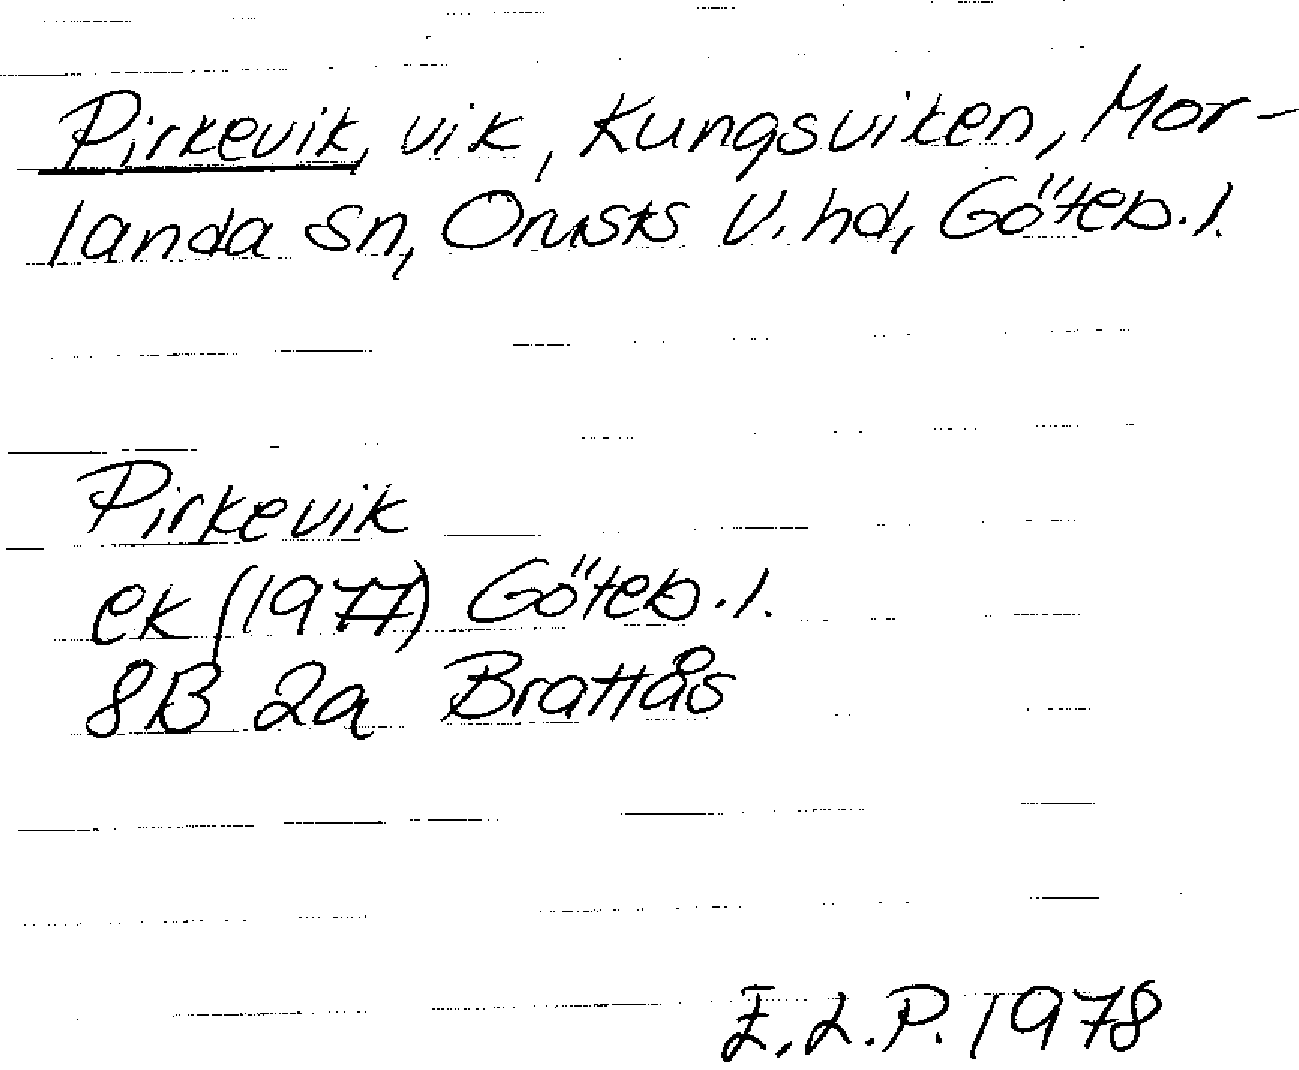 Pirkevik, vik, Kungsviken, Mor-
landa sn, Orusts V. hd, Göteb. l.
Pirkevik
ek (1977) Göteb. l.
8B 2a Brattås
E.L.P. 1978